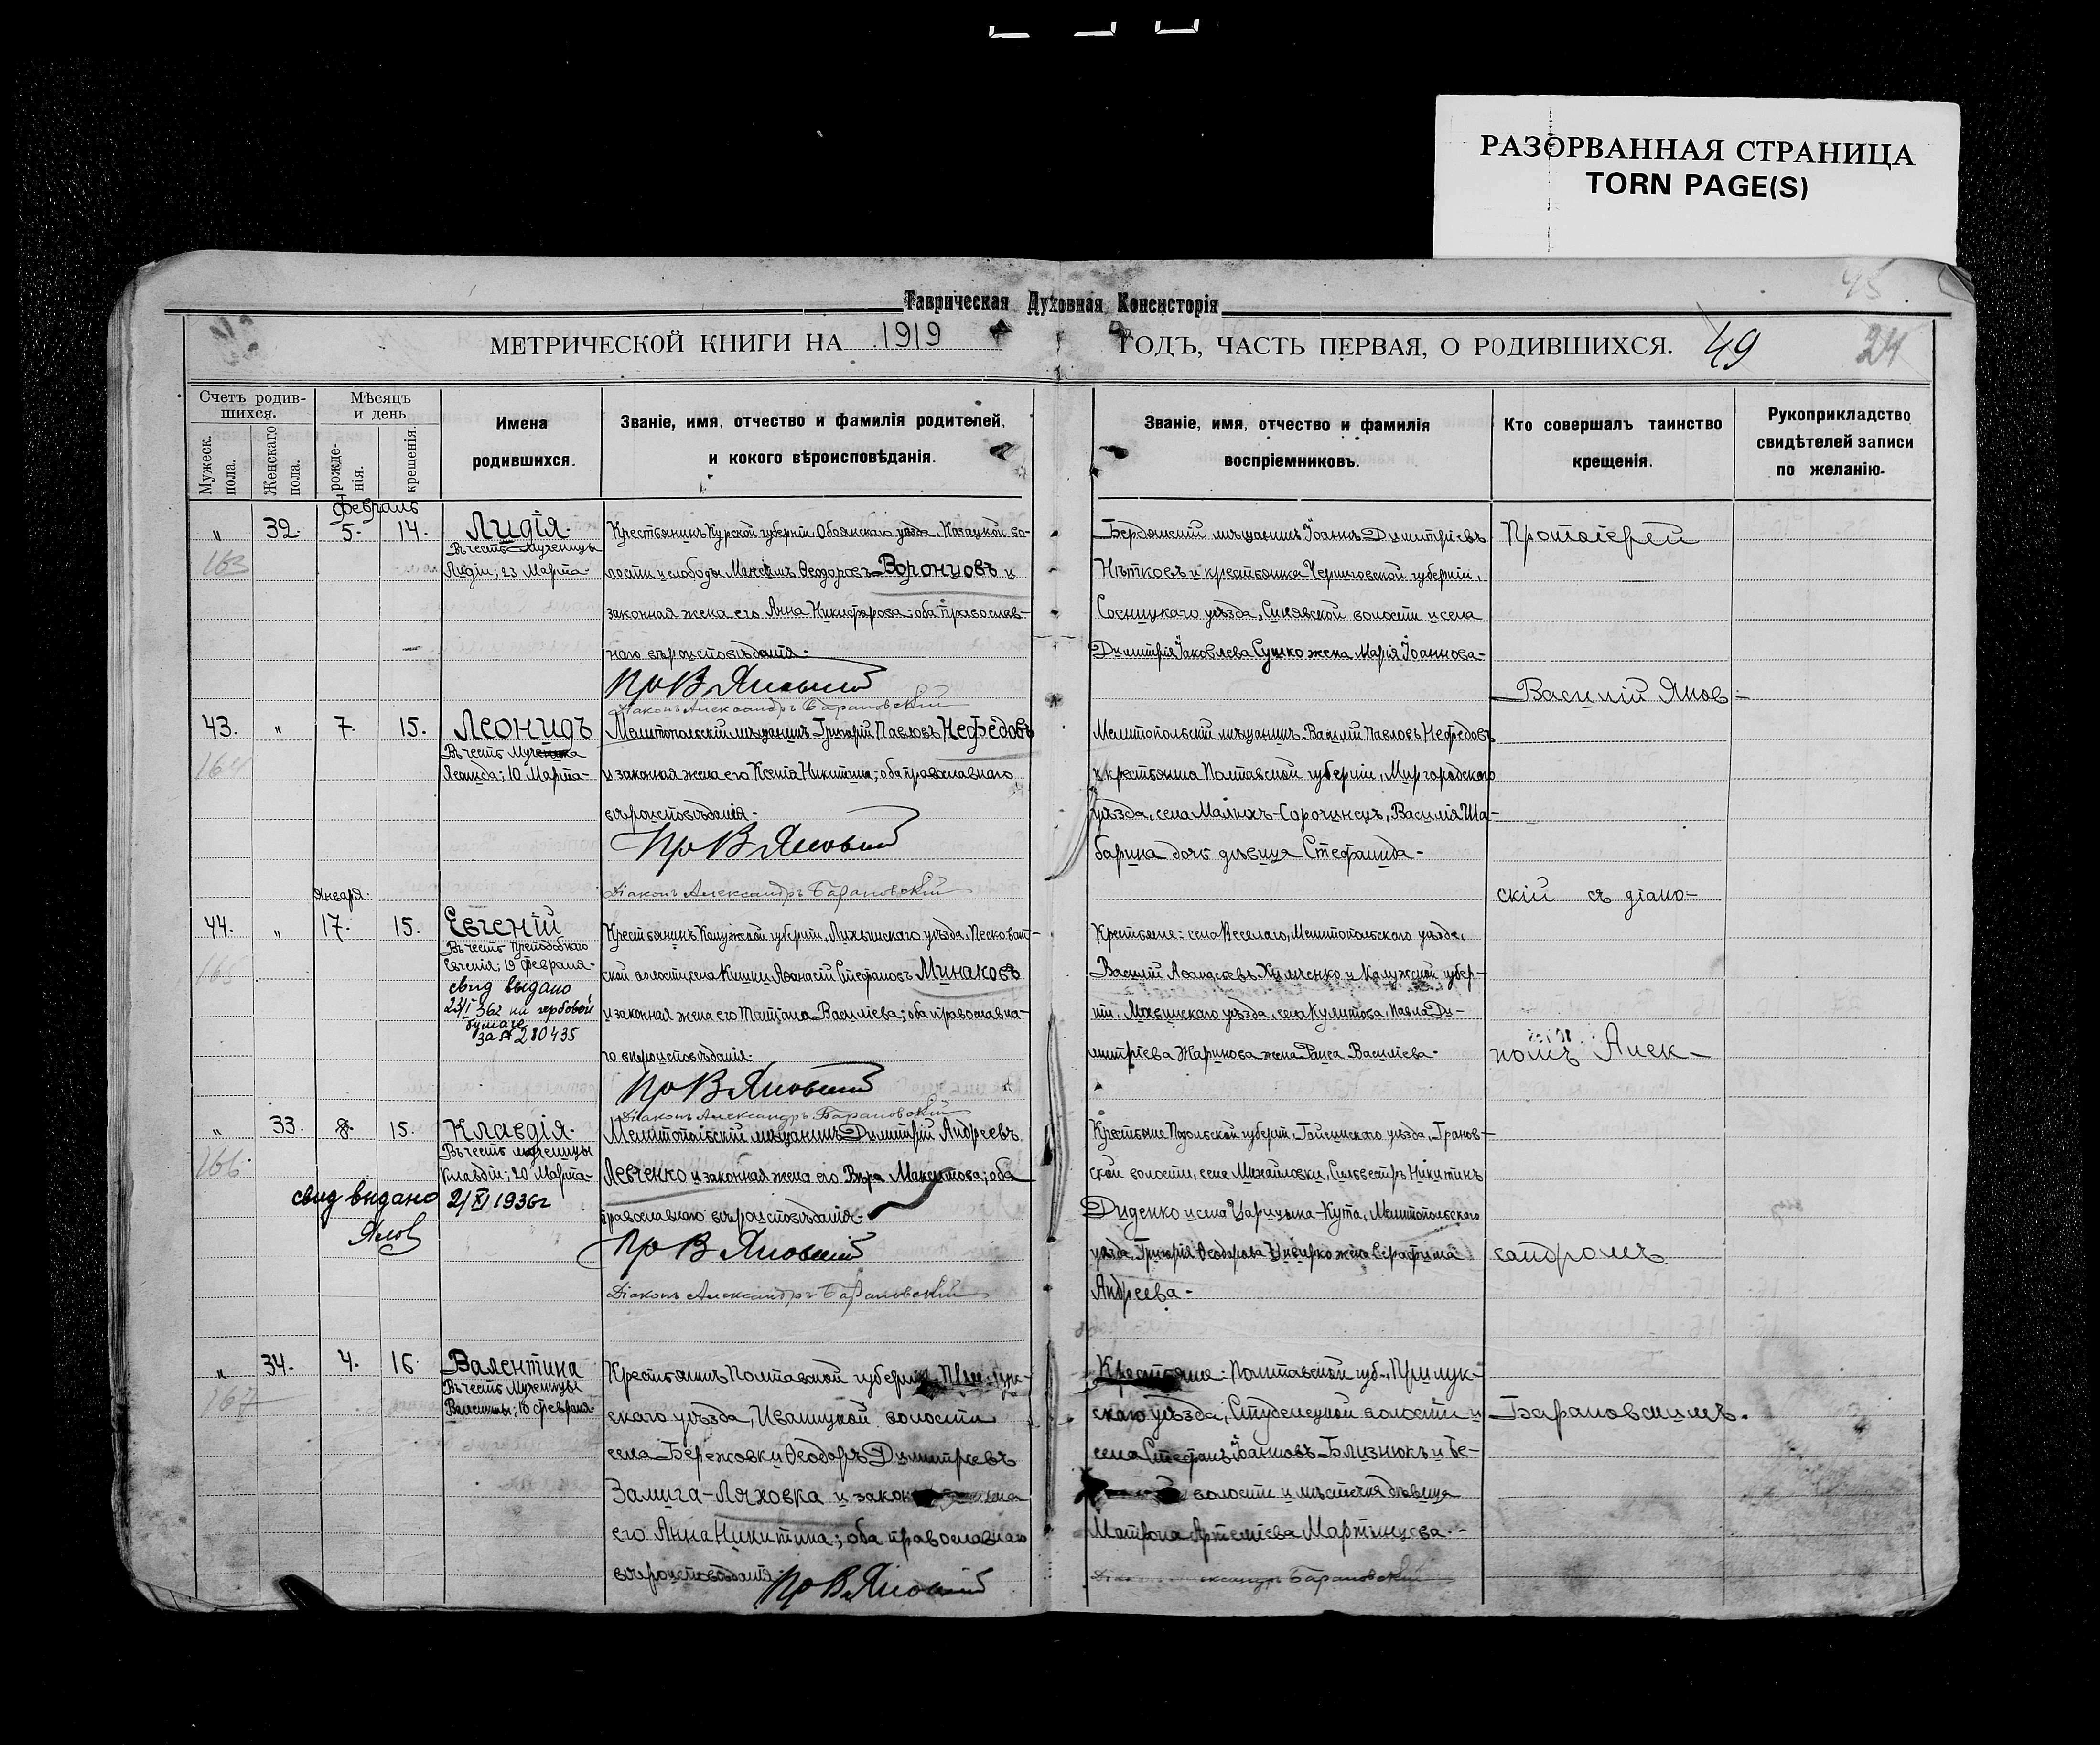 РАЗОРВАННАЯ СТРАНИЦА
TORN PAGE(S)
45
Таврическая Духовная Консисторія
МЕТРИЧЕСКОЙ КНИГИ НА 1919 ГОДЪ, ЧАСТЬ ПЕРВАЯ, О РОДИВШИХСЯ. 49 24
Счетъ родив-
шихся.
Мужеск. пола.
Женскаго пола.
Мѣсяцъ и день
рожде-
нія.
крещенія.
Имена
родившихся.
Званіе, имя, отчество и фамилія родителей,
и кокого вѣроисповѣданія.
Званіе, имя, отчество и фамилія
воспріемниковъ.
Кто совершалъ таинство
крещенія.
Рукоприкладство
свидѣтелей записи
по желанію.
Февраль
" 32. 5. 14.
163
Лидія.
Въ честь Мученицы
Лидіи; 23 Марта
Крестьянинъ Курской губерніи Обоянскаго уѣзда Казацкой во-
лости и слободы Феодоровъ Воронцовъ и
законная жена его Анна Никифорова; оба православ-
наго вѣроисповѣданія.
Пр В Яновскій
Діаконъ Александръ Барановскій
Бердянскій мѣщанинъ Іоаннъ Димитріевъ
Нѣтковъ и крестьянка Черниговской губерніи,
Сосницкаго уѣзда, волости и села
Димитрія Іаковлева Сушко жена Марія Іоаннова
Протоіерей
Василій Янов-
43. " 7. 15.
164
Леонидъ
Въ честь Мученика
Леонида; 10 Марта
Мелитопольскій мѣщанинъ Григорій Павловъ Нефедовъ
и законная жена его Ксенія Никитина; оба православнаго
вѣроисповѣданія.
Пр В Яновскій
Діаконъ Александръ Барановскій
Мелитопольскій мѣщанинъ Василій Павловъ Нефедовъ
и крестьянина Полтавской губерніи, Миргородскаго
уѣзда, села Малыхъ-Сорочинецъ, Василія Ша-
барина дочь дѣвица Стефанида.
скій съ діако-
Января.
44. " 17. 15.
165
Евгеній
Въ честь Преподобнаго
Евгенія; 19 Февраля
свид выдано
23/I 36г на гербовой
бумаге
за № 280435
Крестьянинъ Калужской губерніи, Лихвинскаго уѣзда, Песковат-
ской волости, села Кишки Аѳанасій Стефановъ Минаковъ
и законная жена его Татіана Василіева; оба православна-
го вѣроисповѣданія.
Пр В Яновскій
Діаконъ Александръ Барановскій
Крестьяне: села Веселаго, Мелитопольскаго уѣзда,
Василій Аѳанасіевъ и Калужской губер-
ніи, Лихвинскаго уѣзда, села Павла Ди-
митріева Жаринова жена Раиса Василіева.
номъ Алек-
" 33. 8. 15.
166.
Клавдія.
Въ честь мученицы
Клавдіи; 20 Марта
свид выдано 2/XI 1936г
Мелитопольскій мѣщанинъ Димитрій Андреевъ
Левченко и законная жена его Вѣра Максимова; оба
православнаго вѣроисповѣданія.
Пр В Яновскій
Діаконъ Александръ Барановскій
Крестьяне Подольской губерніи, Гайсинскаго уѣзда, Гранов-
ской волости, села Михайловки, Сильвестръ Никитинъ
Диденко и села Царицына-Кута, Мелитопольскаго
уѣзда, Григорія Ѳеодорова жена Серафима
Андреева.
сандромъ
" 34. 4. 16.
167
Валентина
Въ честь Мученицы
Валентины; 10 февраля.
Крестьянинъ Полтавской губерніи, Прилук-
скаго уѣзда, Иваницкой волости
села Бережовки Ѳеодоръ Димитріевъ
Замига-Ляховка и закон жена
его Анна Никитина; оба православнаго
вѣроисповѣданія.
Пр В Яновскій
Крестьяне: Полтавской губ., Прилук-
скаго уѣзда, волости и
села Стефанъ Іоанновъ Близнюкъ и Бе-
волости и мѣстечка дѣвица
Матрона Артеміева Мартынцева.
Александръ Барановскій
Барановскимъ.